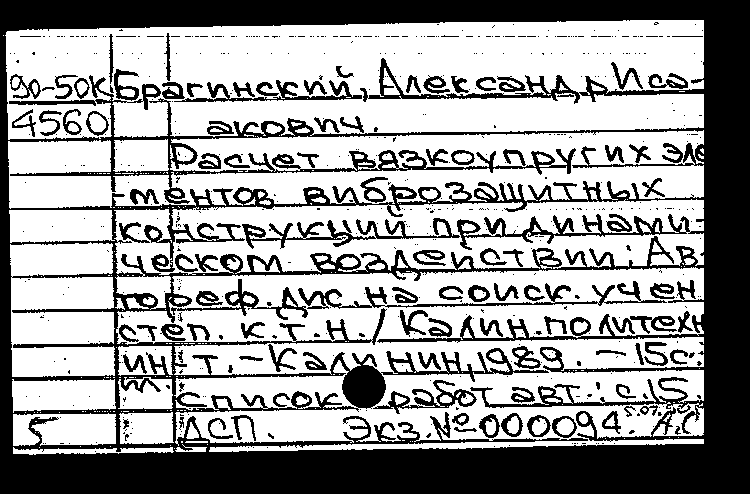 90-50К Брагинский, Александр Иса-
4560 акович.
Расчет вязкоупругих эле
-ментов виброзащитных
конструкций при динами-
ческом воздействии: Ав-
тореф. дис. на соиск. учен
степ. к.т.н. / Калин. политехн
ин-т. - Калинин, 1989. - 15с.:
ил.
список работ авт.: с. 15.
5 ДСП. Экз. № 000094. А.С